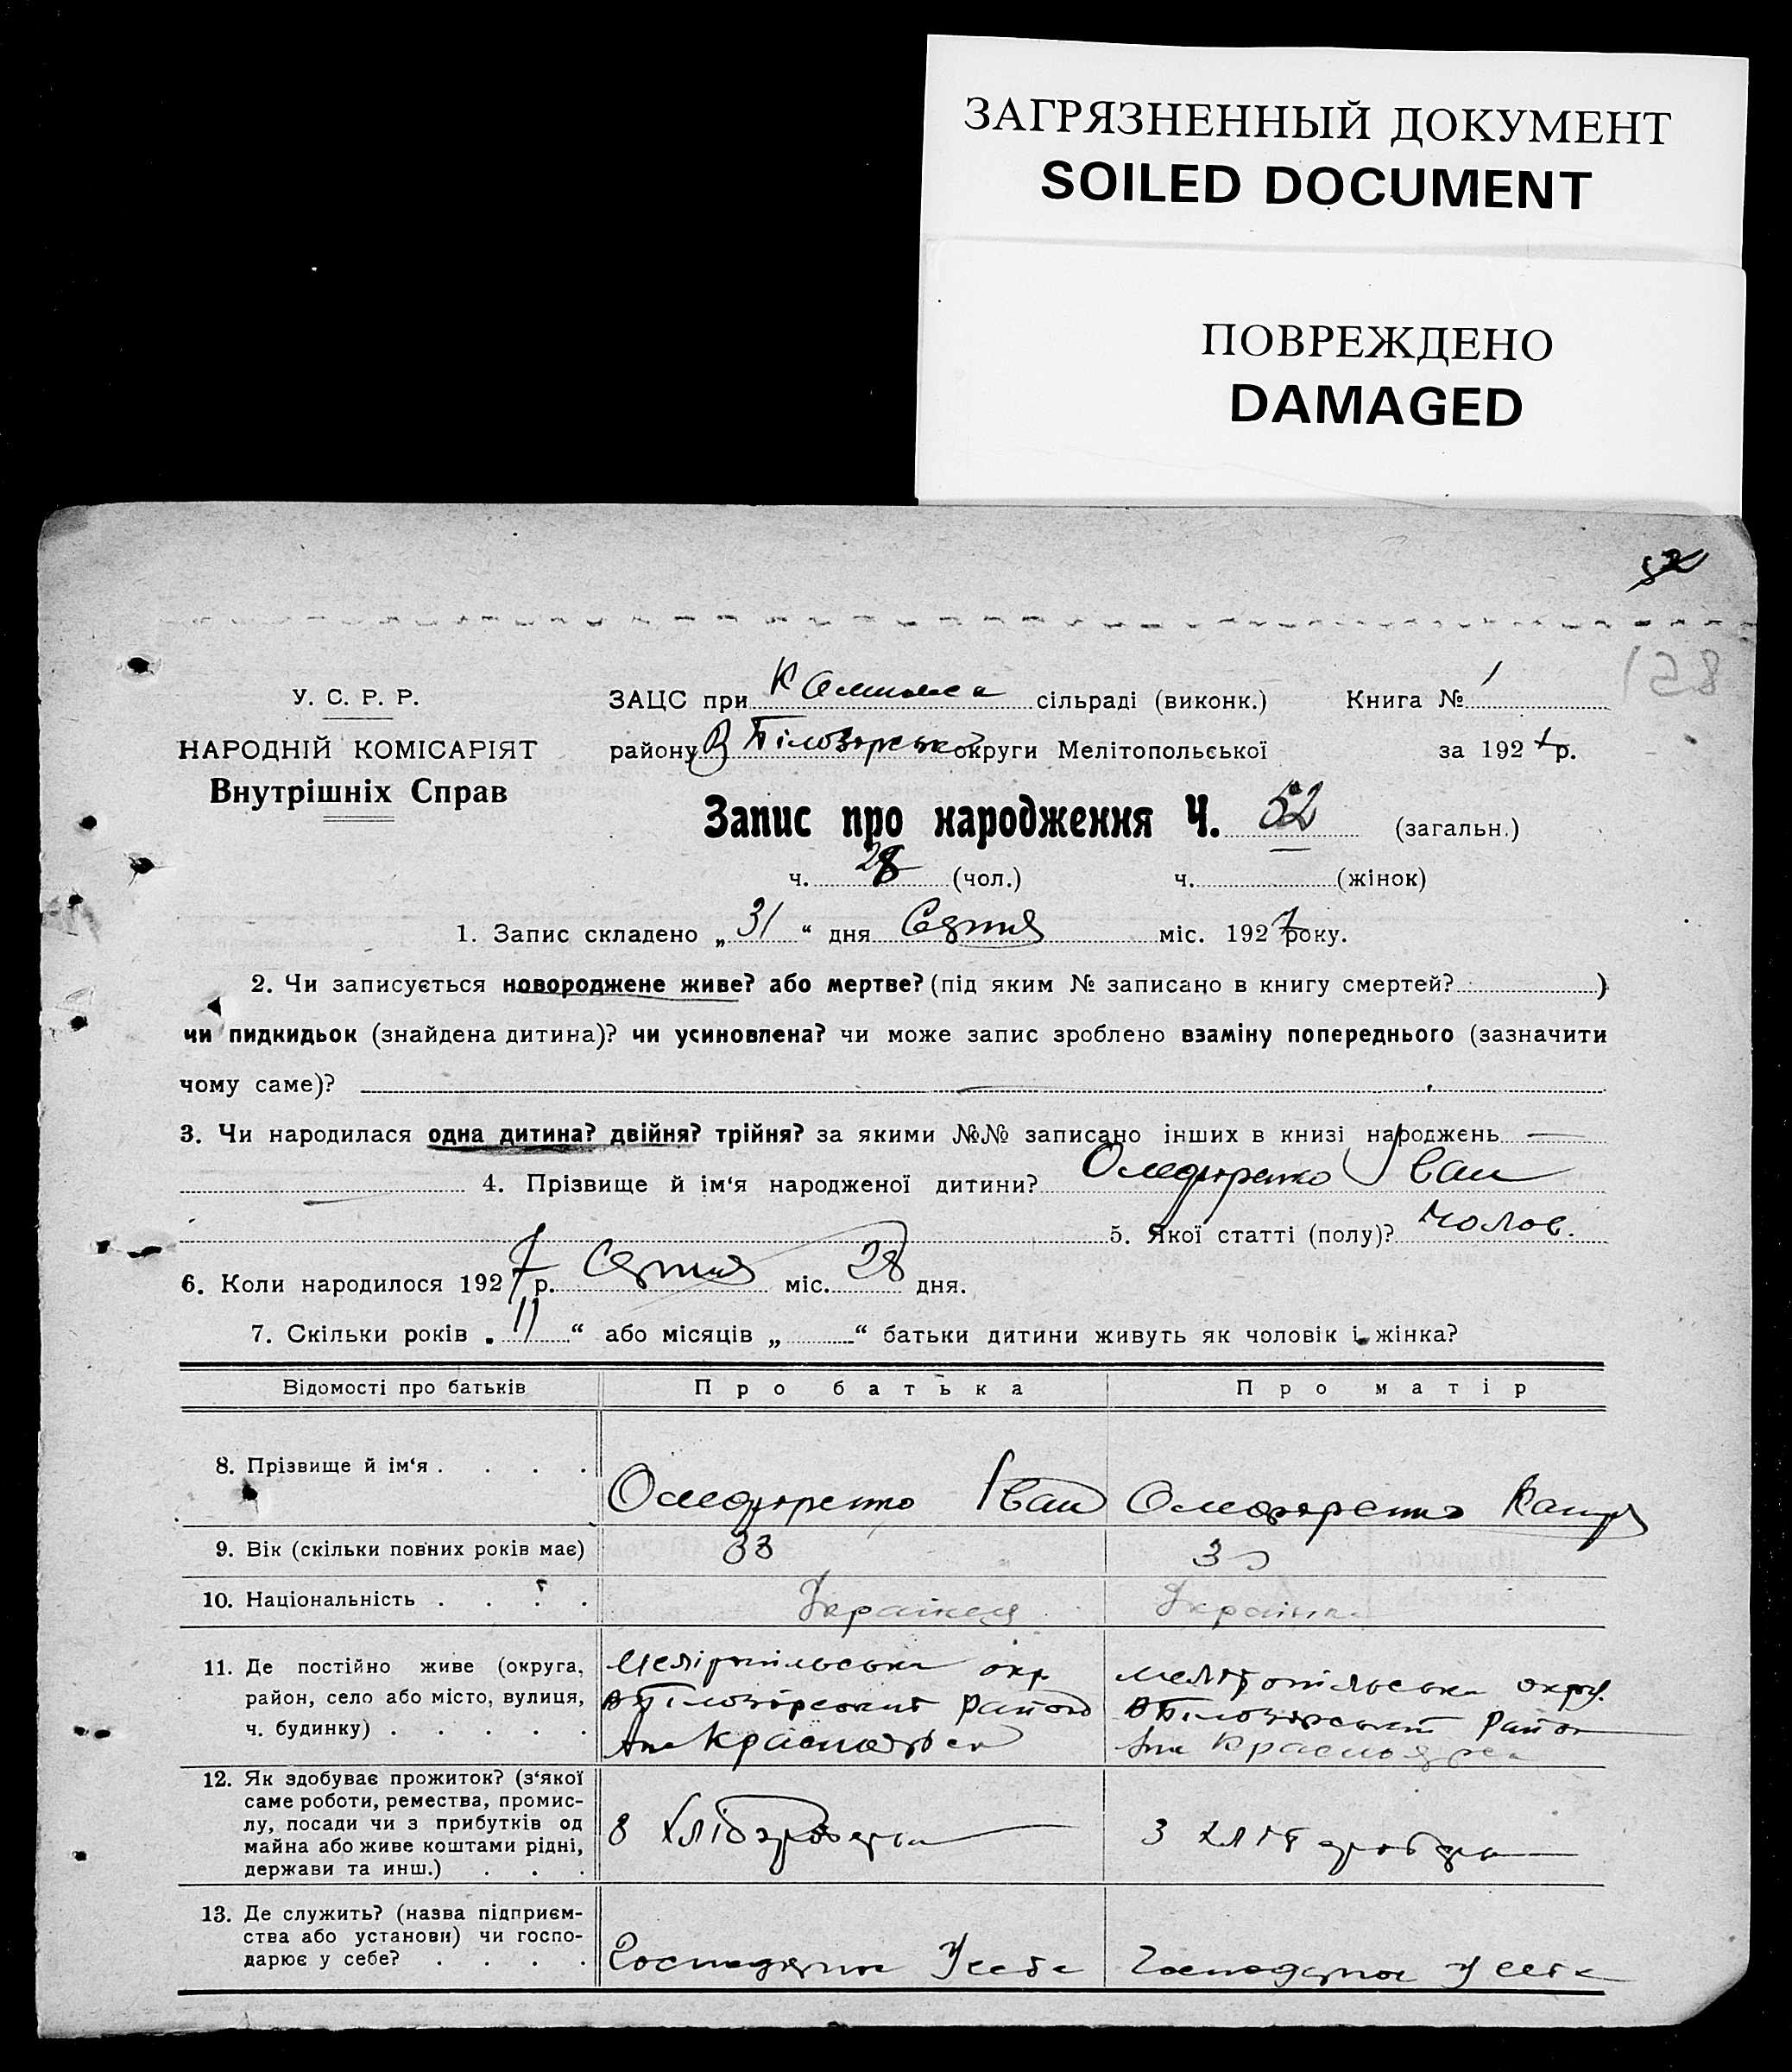 ЗАГРЯЗНЕННЫЙ ДОКУМЕНТ
SOILED DOCUMENT
ПОВРЕЖДЕНО
DAMAGED
52
128
У. С. Р. Р.
НАРОДНІЙ КОМІСАРІЯТ
Внутрішніх Справ
ЗАЦС при сільраді (виконк.) Книга № 1
району В Білозорської округи Мелітопольської за 1927 р.
Запис про народження Ч. 52 (загальн.)
ч. 28 (чол.) ч. (жінок)
1. Запис складено „ 31 “ дня Серпня міс. 1927 року.
2. Чи записується новороджене живе? або мертве? (під яким № записано в книгу смертей? )
чи пидкидьок (знайдена дитина)? чи усиновлена? чи може запис зроблено взаміну попереднього (зазначити
чому саме)?
3. Чи народилася одна дитина? двійня? трійня? за якими №№ записано інших в книзі народжень
4. Прізвище й ім‘я народженої дитини? Іван
5. Якої статті (полу)? чолов.
6. Коли народилося 1927 р. Серпня міс. 28 дня.
7. Скільки років „ 11 “ або місяців „ “ батьки дитини живуть як чоловік і жінка?
Відомості про батьків Про батька Про матір
8. Прізвище й ім‘я . . . . Іван
9. Вік (скільки повних років має) 33 30
10. Національність . . . . Українец Українка
11. Де постійно живе (округа, район, село або місто, вулиця, ч. будинку) . . . . .
Мелітопільська окр
В Білозорський район
Мелітопільська окр.
В Білозорський район
12. Як здобуває прожиток? (з‘якої
саме роботи, ремества, промис-
лу, посади чи з прибутків од
майна або живе коштами рідні,
держави та инш.) . . .
З Хлібороб
З хлібороб
13. Де служить? (назва підприєм-
ства або установи) чи госпо-
дарює у себе? . . . .
У себе
У себе